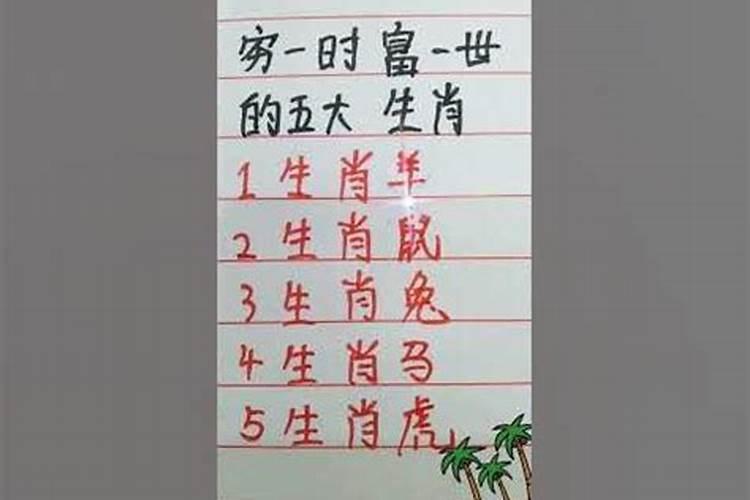 穷一时富一世
的五大生肖
1生肖羊
2生肖鼠
3生肖兔
4生肖马
5生肖虎